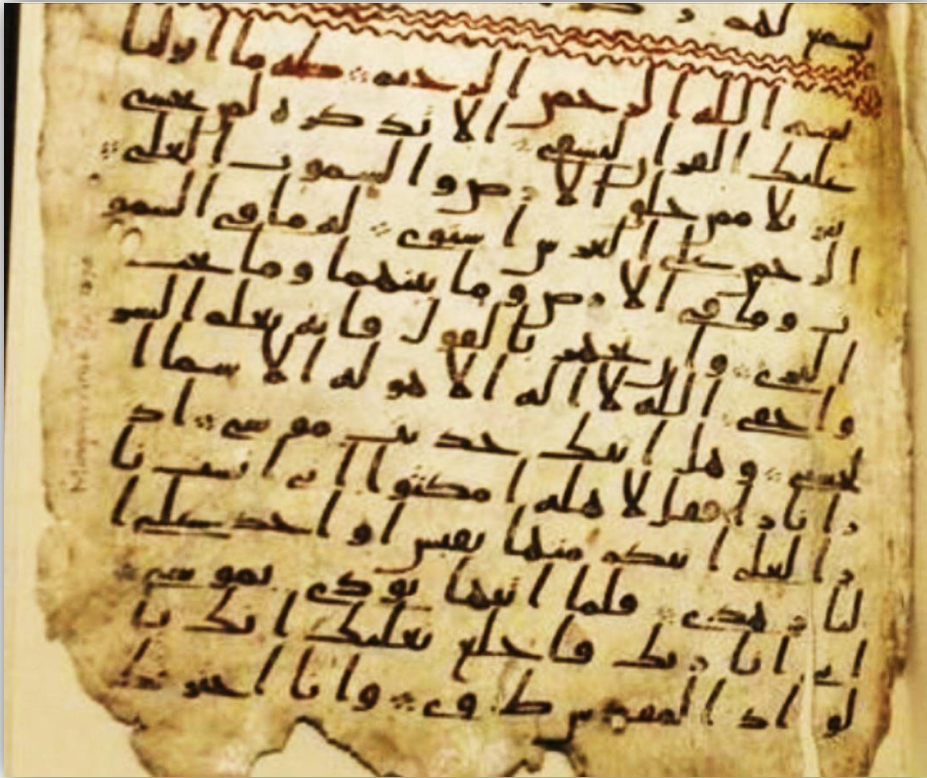 تسمع لهم
بسم الله الرحمن الرحيم طه ما انزلنا
عليك القران لتشقى الا تذكره لمن يخشى
تنزيلا ممن خلق الارض والسموت العلى
الرحمن على العرش استوى له ما في السمو
ت وما في الارض وما بينهما وما تحت
الثرى وان تجهر بالقول فانه يعلم السر
واخفى الله لا اله الا هو له الاسما ا
لحسنى وهل اتيك حديث موسى اذ
را نارا فقل لاهله امكثوا اني انست نا
را لعلي اتيكم منها بقبس او اجد على ا
لنار هدى فلما اتيها نودي يموسى
اني انا ربك فاخلع نعليك انك با
لواد المقدس طوى وانا اخترتك